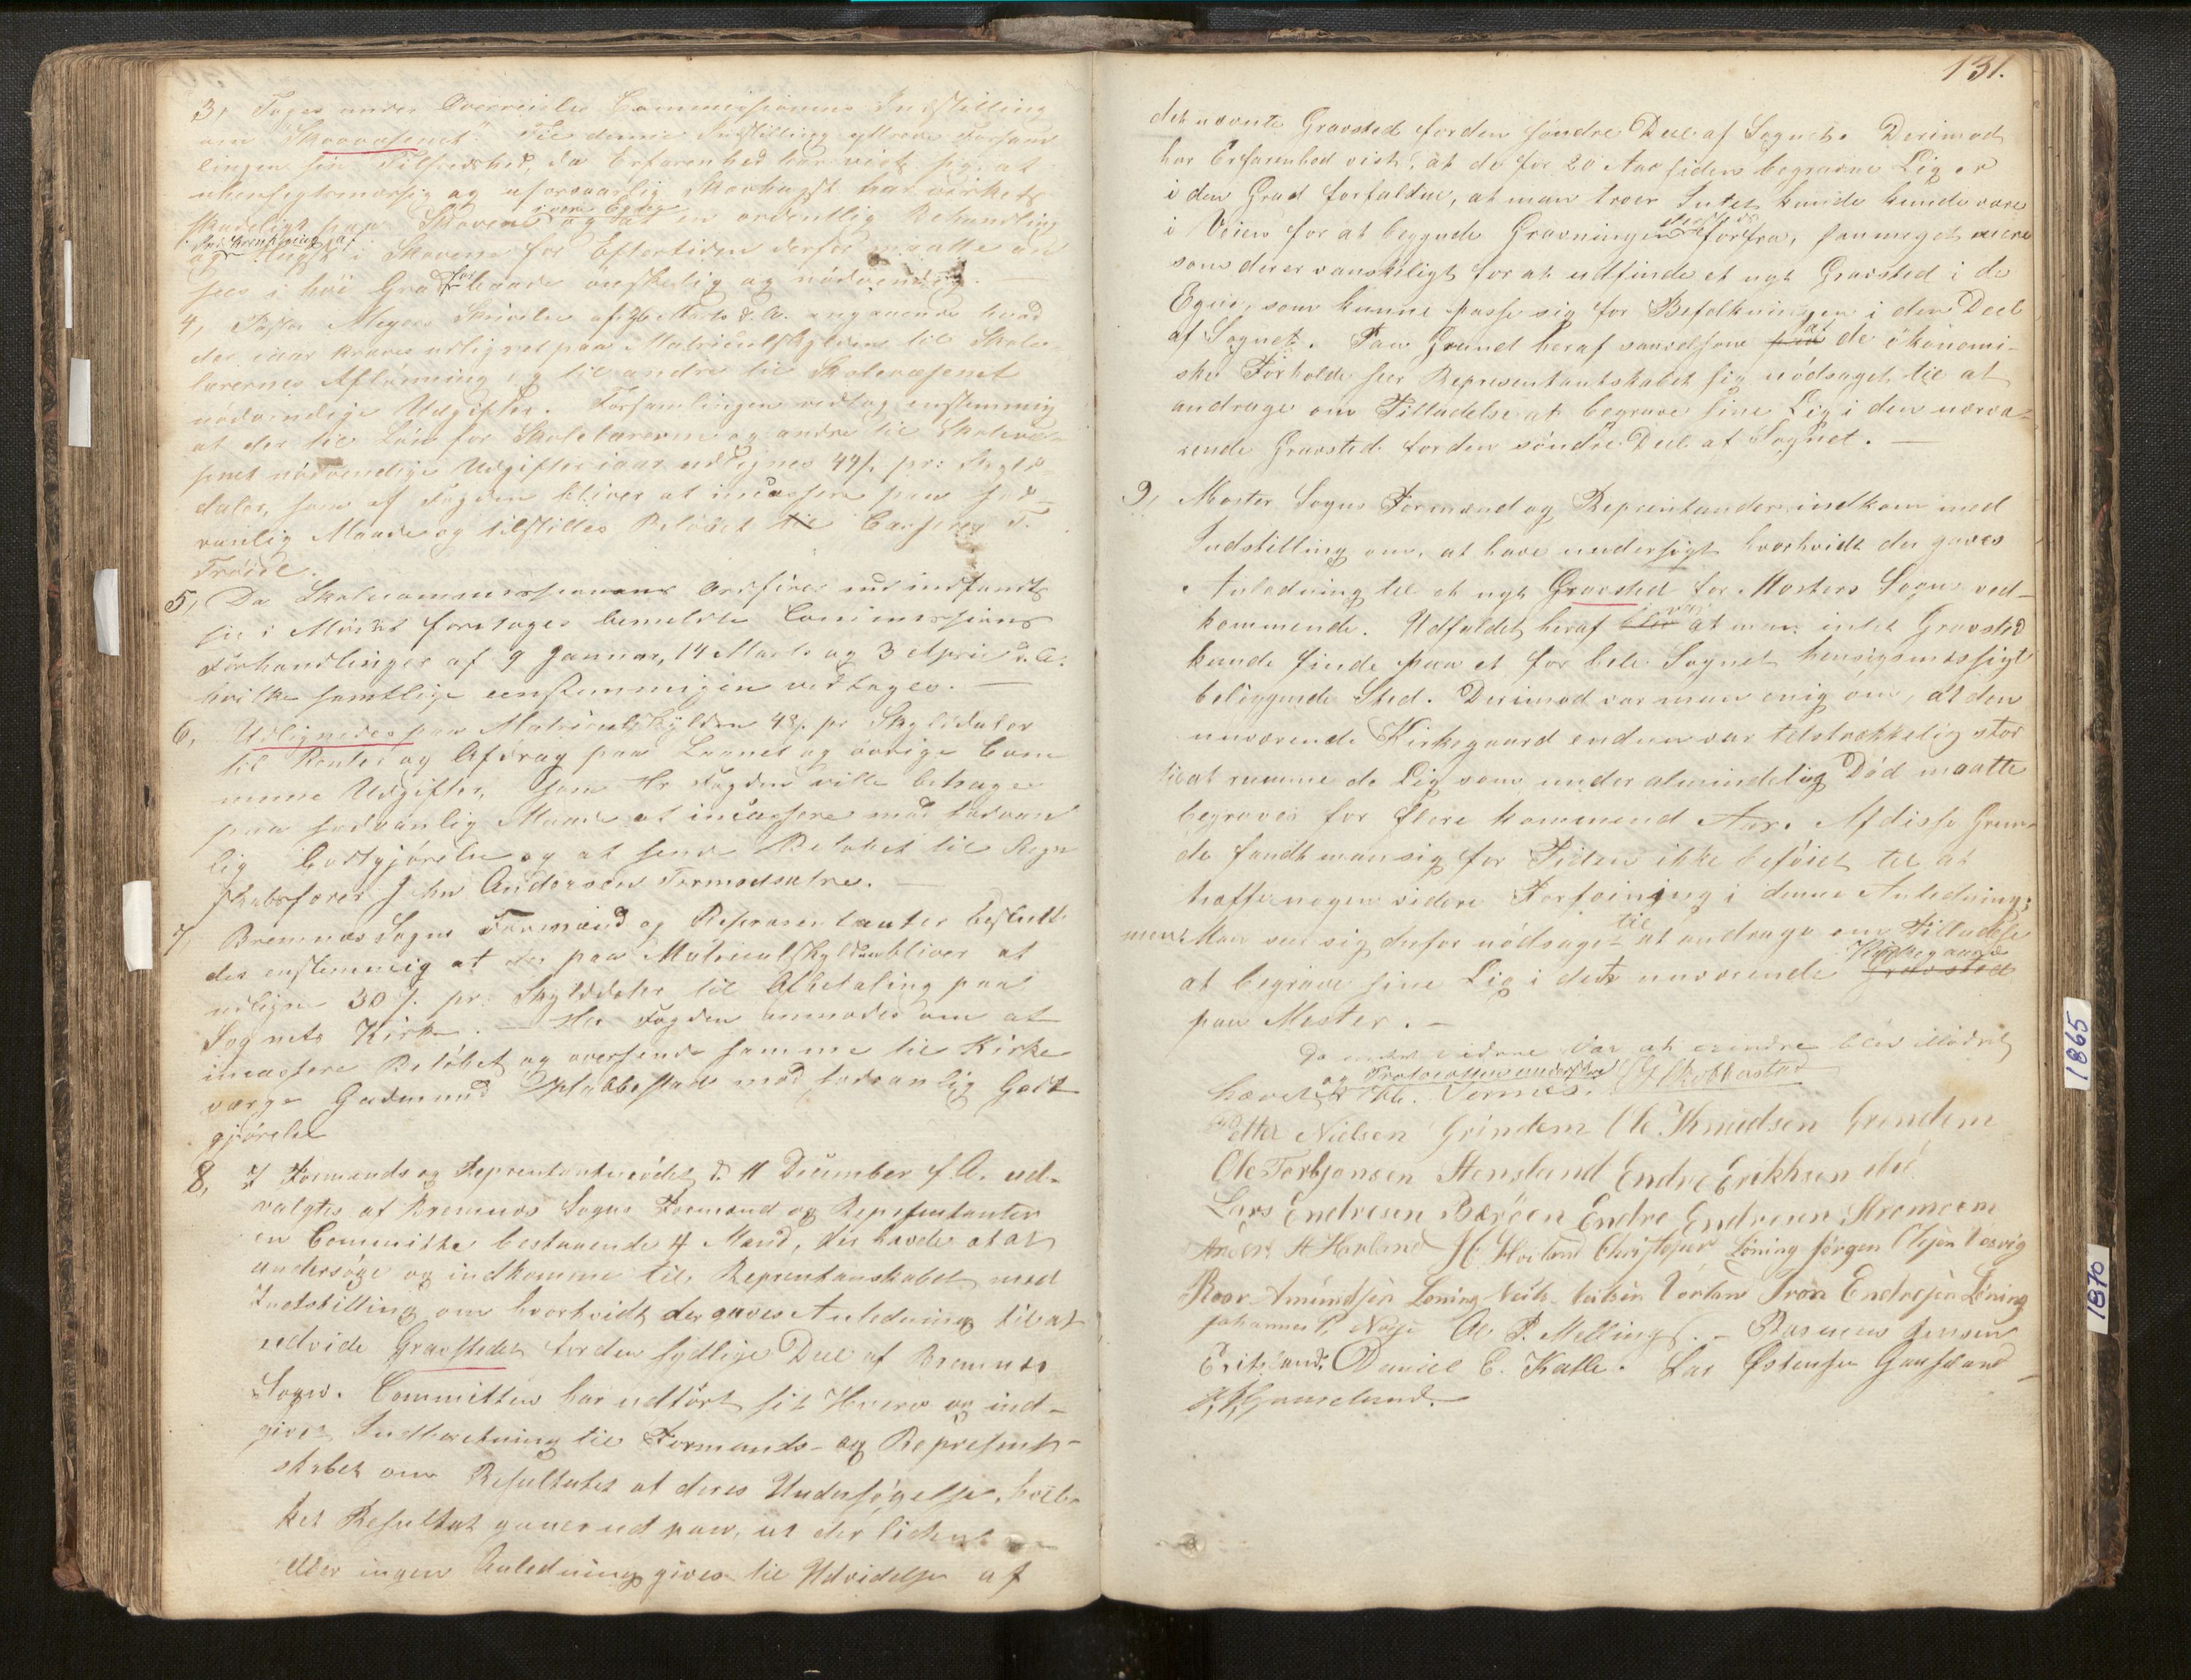 3, Tages under Overveielse Commissionens Indstilling
om "Skovvæsenet". Til denne Indstilling yttrede Forsam
lingen sin Tilfredshed, da Erfarenhed har vist sig, at
uhensigtsmæssig og uforsvarlig Skovhugst har virket
skadeligt paa Skovene og at en ordentlig Behandling
og Indskrænkning af Hugst i Skovene for Eftertiden derfor maatte an
sees i höi Grad for baade önskelig og nödvendig. —
4, Pastor Meyers Skrivelse af 26 Marts d. A. angaaende hvad
der iaar kræves udlignet paa Matriculskylden til Skole
lærernes Aflönning og til andre til Skolevæsenet
nödvendige Udgifter. Forsamlingen vedtog enstemmig
at der til Lön for Skolelærerne og andre til Skolevæ-
senet nödvendige Udgifter iaar udlignes 44 s. pr: Skyld
daler, som af Fogden bliver at incassere paa sæd-
vanlig Maade og tilstilles Belöbet til Casserer T.
Tröite.
5, Da Skolecommissionens Ordförer nu indfandt
sig i Mödet foretoges bemeldte Commissions
Forhandlinger af 9 Januar, 14 Marts og 3 April d. A.
hvilke samtlige eenstemmigen vedtoges. —
6, Udlignedes paa Matriculskylden 48 s. pr Skylddaler
til Renter og Afdrag paa Laanet og övrige Com
mune Udgifter, som Hr Fogden ville behage
paa sædvanlig Maade at incassere mod sædvan
lig Godtgjörelse og at sende Belöbet til Regn
skabsförer John Andersen Tormodsætre. —
7, Bremnes Sogns Formænd og Repræsentanter beslutte
des enstemmig at der paa Matriculskylden bliver at
udligne 30 s. pr: Skylddaler til Afbetaling paa
Sognets Kirke. — Hr Fogden anmodes om at
incassere Belöbet og oversende samme til Kirke
værge Gudmund Habbestad mod sædvanlig Godt
gjörelse
8, I Formands og Reprentantmödet d. 11 December f. A. ud-
valgtes af Bremnes Sogns Formænd og Represententer
en Committe bestaaende 4 Mænd, der havde at
undersöge og indkomme til Reprentanskabet med
Indstilling om hvorvidt der gaves Anledning til at
udvide Gravstedet for den sydlige Deel af Bremnes
Sogn. Committeen har udfört sit Hverv og ind-
given Indberetning til Formands- og Represent-
skabet om Resultatet af deres Undersögelse, hvil-
ket Resultat gaaer ud paa, at der lident
eller ingen Anledning gives til Udvidelse af
131.
det nævnte Gravsted for den söndre Deel af Sognet. Derimod
har Erfarenhed vist, at de for 20 Aar siden begravne Lig er
i den Grad forfaldne, at man troer Intet kunde kunde være
i Veien for at begynde Gravningen forfra, saameget mere
som der er vanskeligt for at udfinde et nyt Gravsted i de
Egne, som kunne passe sig for Befolkningen i den Deel
af Sognet. Paa Grund heraf saavelsom de ökonomi-
ske Forholde seer Representantskabet sig nödsaget til at
andrage om Tilladelse at begrave sine Lig i den nærvæ-
rende Gravsted for den söndre Deel af Sognet. —
9, Moster Sogns Formænd og Reprentander indkom med
Indstilling om, at have undersögt hvorhvidt der gaves
Anledning til et nyt Gravsted for Mosters Sogn ved-
kommende. Udfaldet heraf blev var at man intet Gravsted
kunde finde paa et for hele Sognet hensigtsmessigt
beliggende Sted. Derimod var man enig om, at den
nuværende Kirkegaard endnu var tilstrækkelig stor
til at rumme de Lig som under almindelig Död maatte
begraves for flere kommend Aar. Af disse Grun-
de fandt man sig for Tiden ikke beföiet til at
træffe nogen videre Forföining i denne Anledning;
men Man seer sig derfor nödsaget til at andrage om Tilladelse
at begrave sine Lig i det nuværende Gravsted Kirkegaard
paa Moster. —
Da intet videre var at erindre blev Mödet
hævet og Protocollen underskrevet
Th. Vernes. G Habbestad
Petter Nielsen Grindem Ole Knudsen Grindem
Ole Torbjønsen Stensland Endre Erikhsen
Lars Endresen Bæröen Endre Endresen Strømøen
Anders H Hovland H. Hovland Christofer Löning Jørgen Olsen Vesvig
Roar Amundsen Löning Tron Endresen Löning
Johannes P. Ole P. Melling. — Rasmus Jensen
Eritsland. Daniel C. Kalle. Lar Østensen Gaasland
Gaaseland.
1865
1870